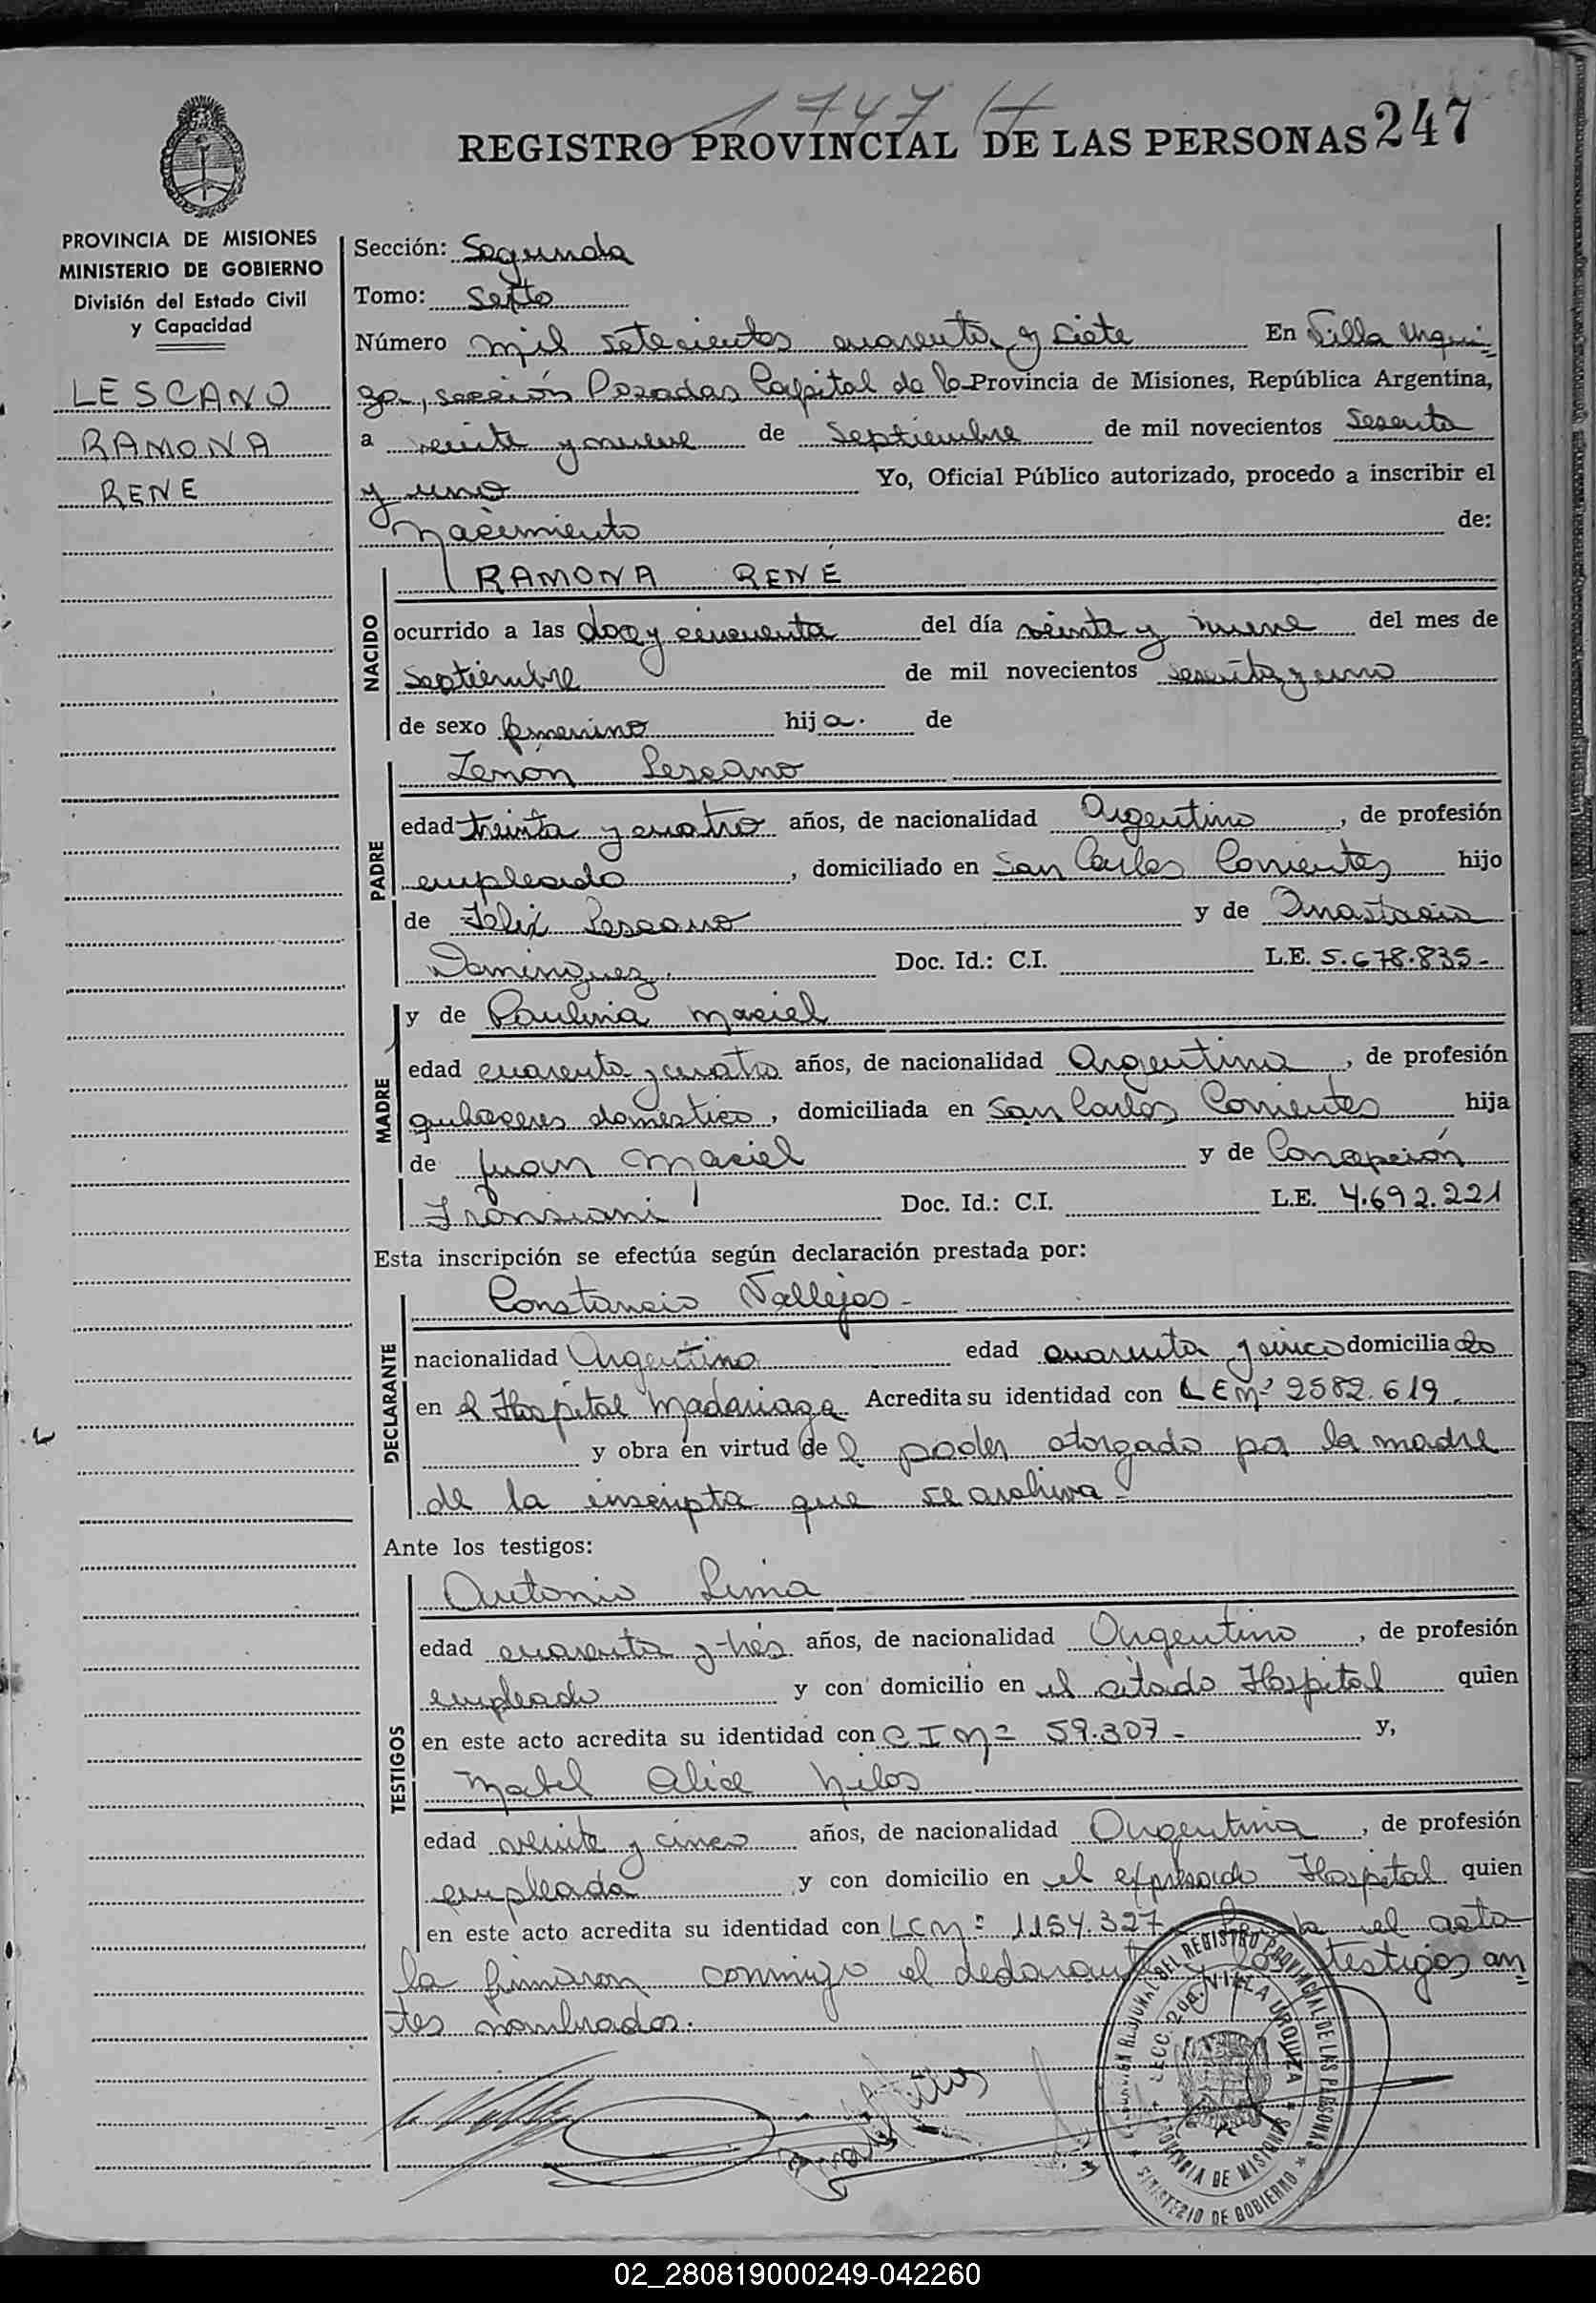 1747 H
REGISTRO PROVINCIAL DE LAS PERSONAS 247
PROVINCIA DE MISIONES
MINISTERIO DE GOBIERNO
División del Estado Civil
y Capacidad
LESCANO
RAMONA
RENE
Sección: Segunda
Tomo: Sexto
Número mil setecientos cuarenta y siete En Villa Urqui-
za, sección Posadas Capital de la Provincia de Misiones, República Argentina,
a veinte y nueve de Septiembre de mil novecientos Sesenta
y uno Yo, Oficial Público autorizado, procedo a inscribir el
Nacimiento de:
NACIDO
RAMONA RENÉ
ocurrido a las doce y cincuenta del día veinte y nueve del mes de
septiembre de mil novecientos sesenta y uno
de sexo femenino hija. de
PADRE
Zenón Lescano
edad treinta y cuatro años, de nacionalidad Argentino, de profesión
empleado, domiciliado en San Carlos Corrientes hijo
de Félix Lescano y de Anastacia
Dominguez. Doc. Id.: C.I. L.E. 5.678.835-
MADRE
y de Paulina Maciel
edad cuarenta y cuatro años, de nacionalidad Argentina, de profesión
quehaceres domestico, domiciliada en San Carlos Corrientes hija
de Juan Maciel y de Concepción
Doc. Id.: C.I. L.E. 4.692.221
Esta inscripción se efectúa según declaración prestada por:
DECLARANTE
Constancio Vallejos-
nacionalidad Argentino edad cuarenta y cinco domiciliado
en el Hospital Madariaga Acredita su identidad con L E Nº 2582.619
y obra en virtud de l poder otorgado por la madre
de la inscripta que se archiva
Ante los testigos:
TESTIGOS
Antonio Lima
edad cuarenta y tres años, de nacionalidad Argentino, de profesión
empleado y con domicilio en el citado Hospital quien
en este acto acredita su identidad con C I Nº 59.307- y,
Mabel Alice
edad veinte y cinco años, de nacionalidad Argentina, de profesión
empleada y con domicilio en el expresado Hospital quien
en este acto acredita su identidad con LC Nº 1154.327 el acta
la firmaron conmigo el declarante testigos an-
tes nombrados.
DEL REGISTRO PROVINCIAL DE LAS PERSONAS
SECC. 2da. VILLA URQUIZA
PROVINCIA DE MISIONES
MINISTERIO DE GOBIERNO
02_280819000249-042260